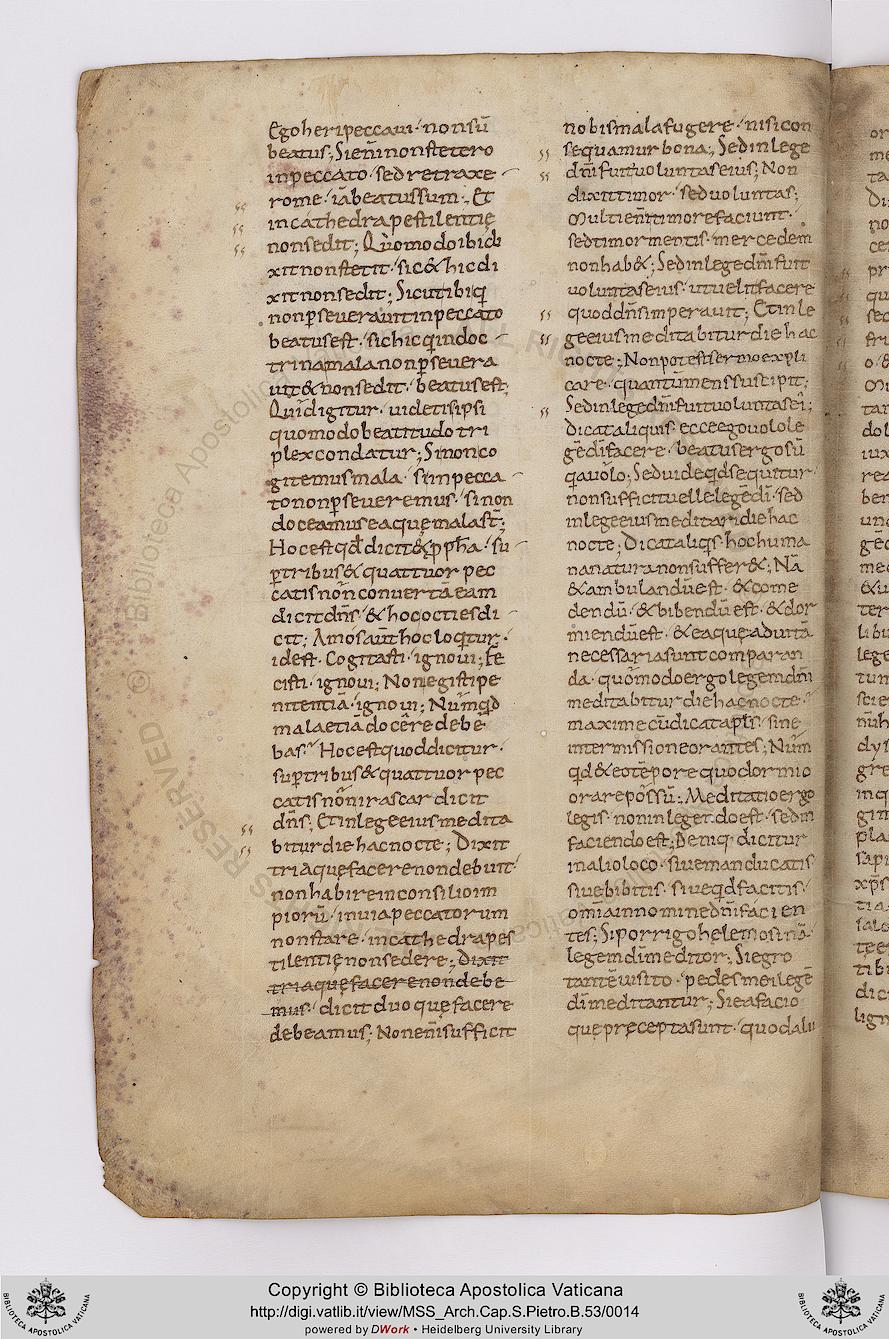 Ego heri peccaui · non sū
beatus; Si eni᷅ non stetero
in peccato · sed retraxe
ro me · iā beatus sum · Et
in cathedra pestilentię
non sedit; Quomodo ibi di
xit non stetit · sic & hic di
xit non sedit; Sicut ibi q̄
non p̄seuerauit in peccato
beatus est · sic hic qui in doc
trina mala non p̄seuera
uit & non sedit · beatus est;
Quid igitur · uidetis ipsi
quomodo beatitudo tri
plex condatur; Si non co
gitemus mala · si in pecca
to non p̄seueremus · si non
doceamus ea quę mala st̄;
Hoc est qđ dicit & ppħa · su
p tribus & quattuor pec
catis non᷅ conuertā eam
dicit dn̄s · & hoc octies di
cit; Amos aut̄ hoc loq̄tur ·
id est · Cogitasti · ignoui; fe
cisti · ignoui; Non egisti pe
nitentiā · ignoui; Nūmqd
mala etiā docere debe
bas · Hoc est quod dicitur ·
sup tribus & quattuor pec
catis non᷅ irascar dicit
dn̄s; Et in lege eius medita
bitur die hac nocte; Dixit
tria quę facere non debuit ·
non habire in consilio im
piorū · in uia peccatorum
non stare · in cathedra pes
tilentię non sedere; Dixit
tria quę facere non debe
mus · dicit duo quę facere
debeamus; Non eni᷅ sufficit
nobis mala fugere · nisi con
sequamur bona; Sed in lege
dn̄i fuit uoluntas eius; Non
dixit timor · sed uoluntas;
Multi enī timore faciunt ·
sed timor mentis · mercedem
non hab&; Sed in lege dn̄i fuit
uoluntas eius · ut uelit facere
quod dn̄s imperauit; Et in le
ge eius meditabitur die hac
nocte; Non potest sermo expli
care · quantum᷅ mens suscipit;
Sed in lege dn̄i fuit uoluntas ei᷅;
Dicat aliquis · ecce ego uolo le
gē di facere · beatus ergo sū
q̄a uolo; Sed uide qd sequitur ·
non sufficit uelle legē di · sed
in lege eius meditari die hac
nocte; Dicat aliq̄s · hoc huma
na natura non suffer&; Nā
& ambulandū est · & come
dendū · & bibendū est · & dor
miendū est · & ea quę ad uitā
necessaria sunt comparan
da · quomodo ergo legem dn̄i
meditabitur die hac nocte ·
maxime cū dicat apl̄s · sine
intermissione orantes; Num᷅
qd & eo tēpore quo dormio
orare possū; Meditatio ergo
legis · non in legendo est · sed in
faciendo est; Deniq; dicitur
in alio loco · siue manducatis
siue bibitis · siue qd facitis ·
omīa in nomine dn̄i facien
tes; Si porrigo helemosinā
legem di meditor; Si egro
tantē uisito · pedes mei legē
di meditantur; Si ea facio
quę pręcepta sunt · quod aliı
Copyright © Biblioteca Apostolica Vaticana
http://digi.vatlib.it/view/MSS_Arch.Cap.S.Pietro.B.53/0014
powered by DWork • Heidelberg University Library
BIBLIOTECA APOSTOLICA VATICANA
BIBLIOTECA APOSTOLICA VATICANA